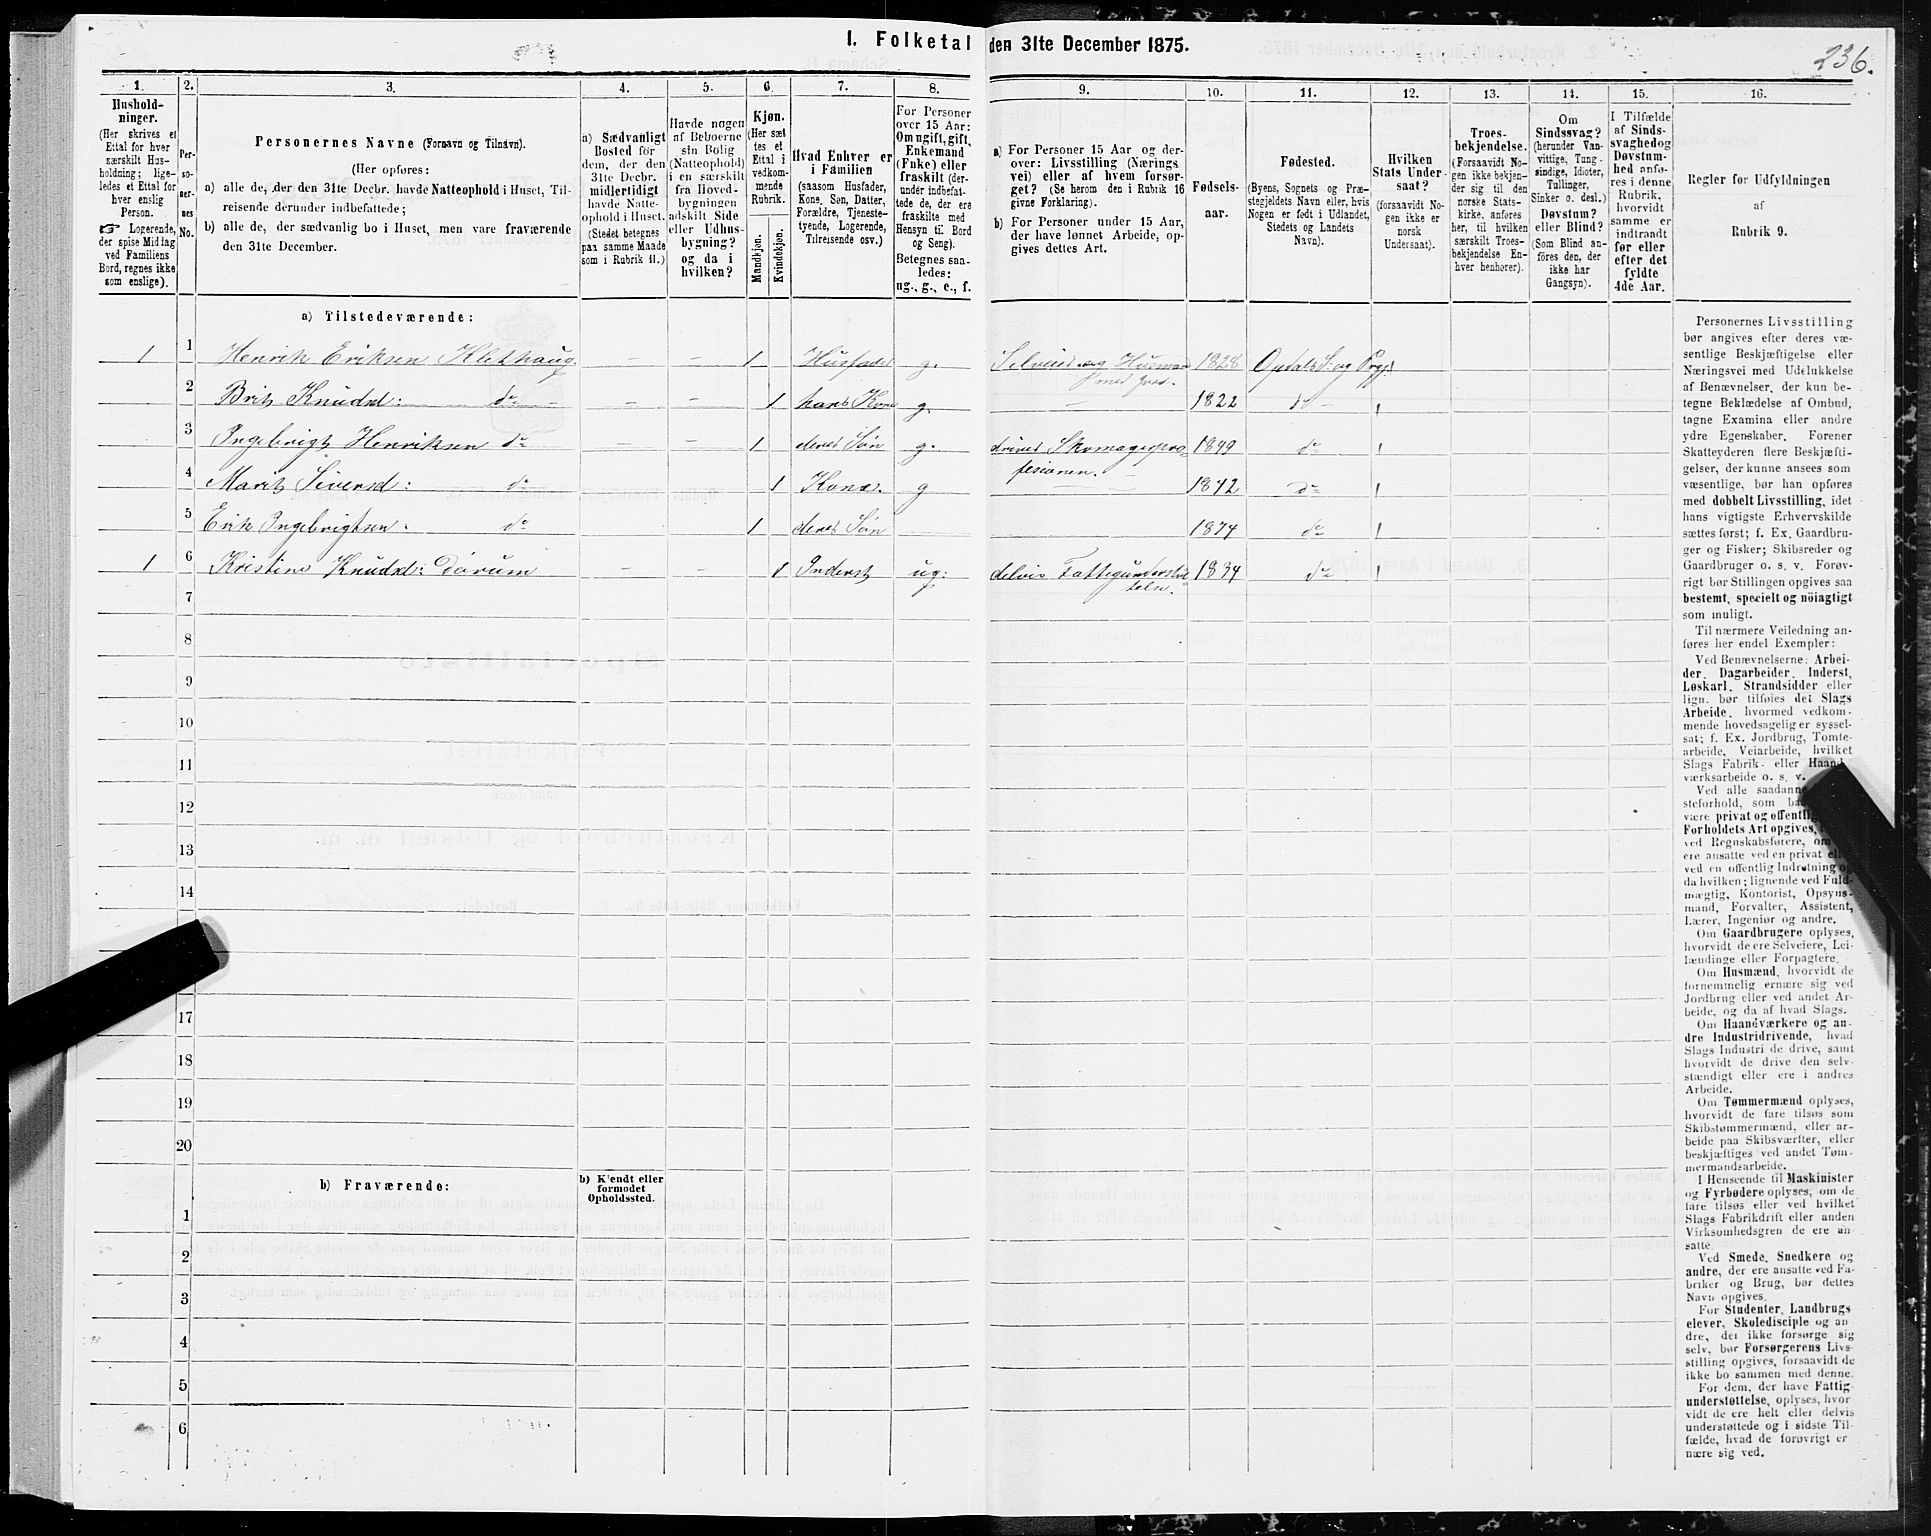 I. Folketal den 31te December 1875.
236.
1.
Hushold-
ninger.
(Her skrives et
Ettal for hver
særskilt Hus-
holdning; lige-
ledes et Ettal for
hver enslig
Person.
☞ Logerende,
der spise Middag
ved Familiens
Bord, regnes ikke
som enslige).
2.
Per-
so-
ner-
nes
No.
3.
Personernes Navne (Fornavn og Tilnavn).
(Her opføres:
a) alle de, der den 31te Decbr. havde Natteophold i Huset, Til-
reisende derunder indbefattede;
b) alle de, der sædvanlig bo i Huset, men vare fraværende
den 31te December.
4.
a) Sædvanligt
Bosted for
dem, der den
31te Decbr.
midlertidigt
havde Natte-
ophold i Huset.
(Stedet betegnes
paa samme Maade
som i Rubrik 11.)
5.
Havde nogen
af Beboerne
sin Bolig
(Natteophold)
i en særskilt
fra Hoved-
bygningen
adskilt Side
eller Udhus-
bygning?
og da i
hvilken?
6.
Kjøn.
(Her sæt
tes et
Ettal i
vedkom-
mende
Rubrik.
Mandkjøn.
Kvindekjøn.
7.
Hvad Enhver er
i Familien
(saasom Husfader,
Kone, Søn, Datter,
Forældre, Tjeneste-
tyende, Logerende,
Tilreisende osv.)
8.
For Personer
over 15 Aar:
Om ugift, gift,
Enkemand
(Enke) eller
fraskilt (der-
under indbefat-
tede de, der ere
fraskilte med
Hensyn til Bord
og Seng).
Betegnes saa-
ledes:
ug., g., e., f.
9.
a) For Personer 15 Aar og der-
over: Livsstilling (Nærings
vei) eller af hvem forsør-
get? (Se herom den i Rubrik 16
givne Forklaring).
b) For Personer under 15 Aar,
der have lønnet Arbeide, op-
gives dettes Art.
10.
Fødsels-
aar.
11.
Fødested.
(Byens, Sognets og Præ-
stegjeldets Navn eller, hvis
Nogen er født i Udlandet,
Stedets og Landets
Navn).
12.
Hvilken
Stats Under-
saat?
(forsaavidt No-
gen ikke er
norsk
Undersaat).
13.
Troes-
bekjendelse.
(Forsaavidt No-
gen ikke bekjen-
der sig til den
norske Stats-
kirke, anføres
her, til hvilken
særskilt Troes-
bekjendelse En-
hver henhører).
14.
Om
Sindssvag?
(herunder Van-
vittige, Tung-
sindige, Idioter,
Tullinger,
Sinker o. desl.)
Døvstum?
eller Blind?
(Som Blind an-
føres den, der
ikke har
Gangsyn).
15.
I Tilfælde
af Sinds-
svaghed og
Døvstum-
hed anfø-
res i denne
Rubrik,
hvorvidt
samme er
indtraadt
før eller
efter det
fyldte
4de Aar.
16.
Regler for Udfyldningen
af
Rubrik 9.
a) Tilstedeværende:
1 1 Henrik Eriksen Klethaug - - 1 Husfader g. Selveier og Husmand 1828 Opdals S. og Prgj.
med Jord.
2 Brit Knudsd: do - - - 1 hans Kone g. - 1822 do -
3 Ingebrigt Henriksen do - - 1 deres Søn g. driver Skomagerpro- 1849 do
fesionen.
4 Marit Siversd: do 1 Kone. g - 1842 do
5 Erik Ingebrigtsen: do 1 deres Søn 1874 do
1 6 Kristine Knudsd: Dørum - - 1 Inderst ug: delvis Fattigunderstøt 1834 do
telse.
7
8
9
10
11
12
13
14
17
18
19
20
b) Fraværende:
b) Kjendt eller
formodet
Opholdssted.
1
2
3
4
5
6
Personernes Livsstilling
bør angives efter deres væ-
sentlige Beskjæftigelse eller
Næringsvei med Udelukkelse
af Benævnelser, der kun be-
tegne Beklædelse af Ombud,
tagne Examina eller andre
ydre Egenskaber. Forener
Skatteyderen flere Beskjæfti-
gelser, der kunne ansees som
væsentlige, bør han opføres
med dobbelt Livsstilling, idet
hans vigtigste Erhvervskilde
sættes først; f. Ex. Gaardbru-
ger og Fisker; Skibsreder og
Gaardbruger o. s. v. Forøv-
rigt bør Stillingen opgives saa
bestemt, specielt og nöiagtigt
som muligt.
Til nærmere Veiledning an-
føres her endel Exempler:
Ved Benævnelserne: Arbei-
der, Dagarbeider, Inderst,
Løskarl, Strandsidder eller
lign. bør tilføies det Slags
Arbeide, hvormed vedkom-
mende hovedsagelig er syssel-
sat; f. Ex. Jordbrug, Tomte-
arbeide, Veiarbeide, hvilket
Slags Fabrik- eller Haand-
værksarbeide o. s. v.
Ved alle saadanne
steforhold, som
være privat og offentlig
Forholdets Art opgives,
ved Regnskabsførere, om
ere ansatte ved en privat eller
ved en offentlig Indretning og
da hvilken; lignende ved Fuld-
mægtig, Kontorist, Opsyns-
mand, Forvalter, Assistent,
Lærer, Ingeniør og andre.
Om Gaardbrugere oplyses,
hvorvidt de ere Selveiere, Lei-
lændinge eller Forpagtere.
Om Husmænd, hvorvidt de
fornemmelig ernære sig ved
Jordbrug eller ved andet Ar-
beide, og da af hvad Slags.
Om Haandværkere og an-
dre Industridrivende, hvad
Slags Industri de drive, samt
hvorvidt de drive den selv-
stændigt eller ere i andres
Arbeide.
Om Tømmermænd oplyses,
hvorvidt de fare tilsøs som
Skibstømmermænd, eller ar-
beide paa Skibsværfter, eller
beskjæftiges ved andet Tøm-
mermandsarbeide.
I Henseende til Maskinister
og Fyrbødere oplyses, om de
fare tilsøs eller ved hvilket
Slags Fabrikdrift eller anden
Virksomhedsgren de ere an-
satte.
Ved Smede, Snedkere og
andre, der ere ansatte ved Fa-
briker og Brug, bør dettes
Navn opgives.
For Studenter, Landbrugs
elever, Skoledisciple og an
dre, der ikke forsørge sig
selv, bør Forsørgerens Livs-
stilling opgives, forsaavidt de
ikke bo sammen med denne.
For dem, der have Fattig-
understøttelse, oplyses, hvor-
vidt de ere helt eller delvis
understøttede og i sidste Til-
fælde, hvad de forøvrigt er
nære sig ved.